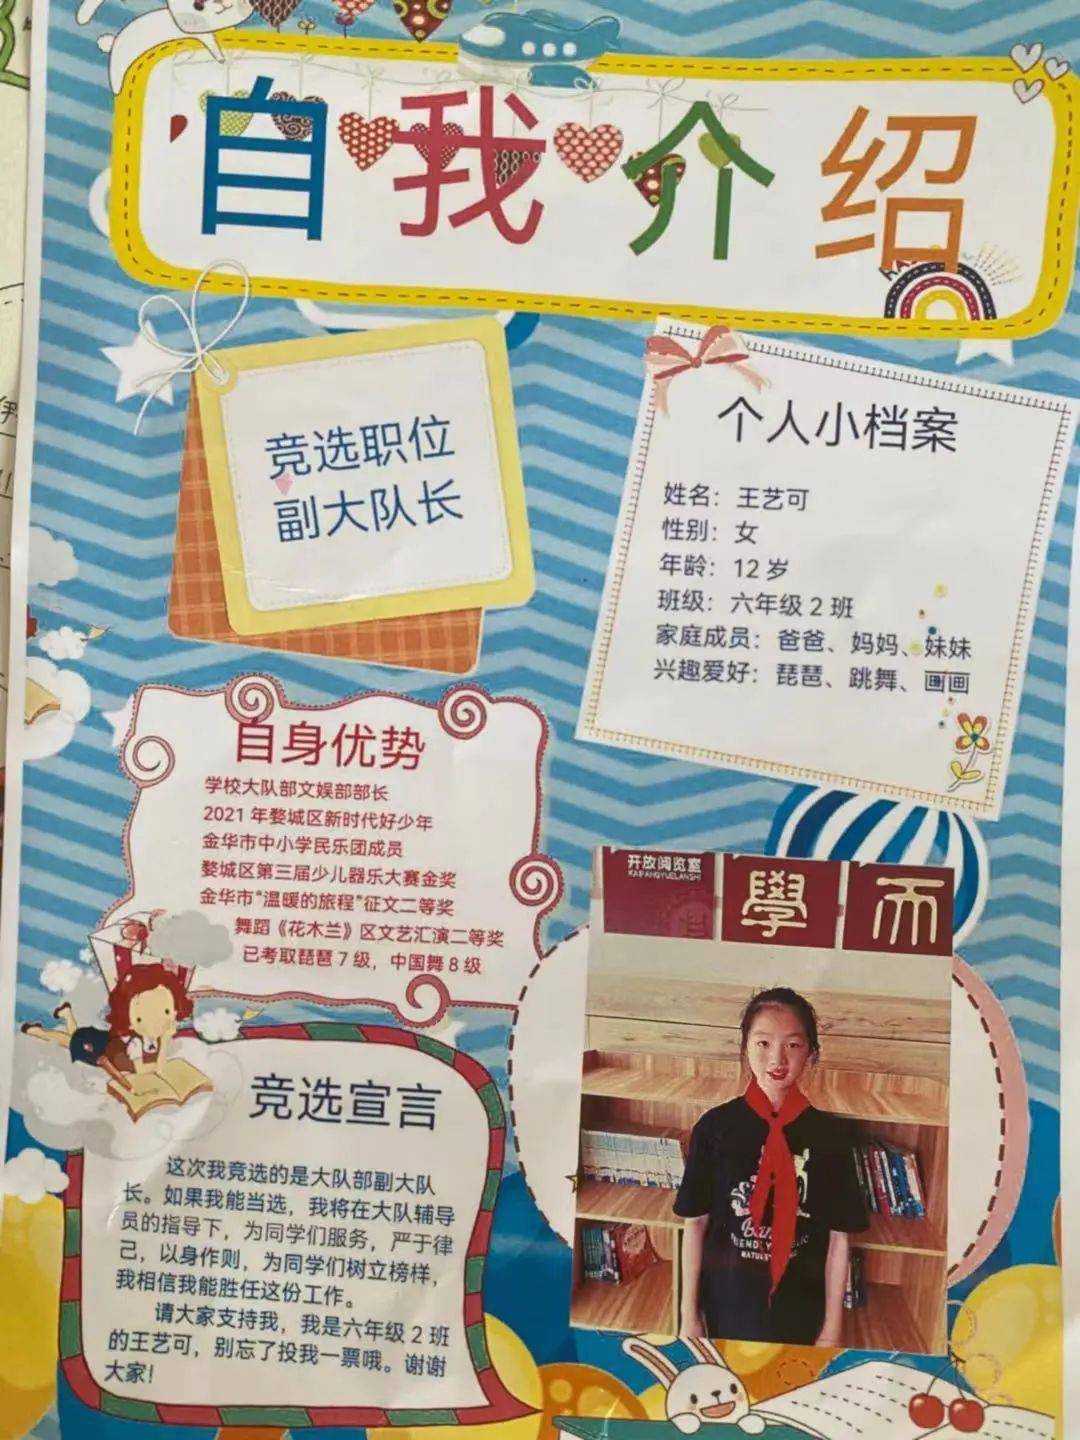 自我介绍
竞选职位
副大队长
个人小档案
姓名：王艺可
性别：女
年龄：12 岁
班级：六年级 2 班
家庭成员：爸爸、妈妈、妹妹
兴趣爱好：琵琶、跳舞、画画
自身优势
学校大队部文娱部部长
2021 年婺城区新时代好少年
金华市中小学民乐团成员
婺城区第三届少儿器乐大赛金奖
金华市“温暖的旅程”征文二等奖
舞蹈《花木兰》区文艺汇演二等奖
已考取琵琶 7 级，中国舞 8 级
开放阅览室
KAIFANGYUELANSHI
學
而
竞选宣言
这次我竞选的是大队部副大队
长。如果我能当选，我将在大队辅导
员的指导下，为同学们服务，严于律
己，以身作则，为同学们树立榜样，
我相信我能胜任这份工作。
请大家支持我，我是六年级 2 班
的王艺可，别忘了投我一票哦。谢谢
大家！